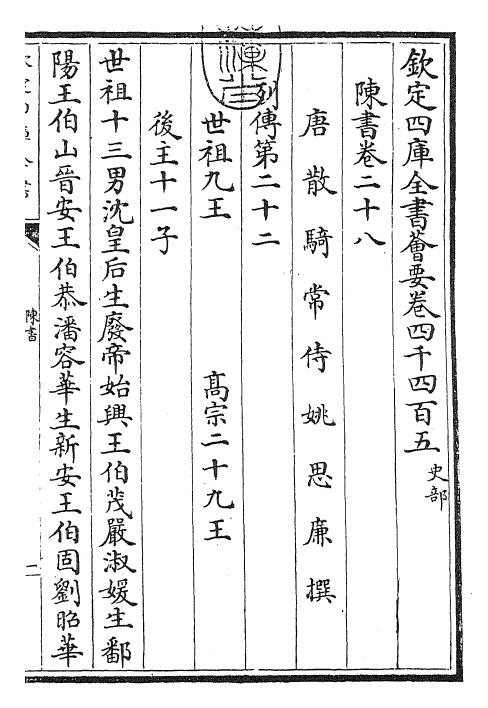 欽定四庫全書薈要卷四千四百五 史部
陳書卷二十八
唐散騎常侍姚思廉撰
列傳第二十二
世祖九王 高宗二十九王
後主十一子
世祖十三男沈皇后生廢帝始興王伯茂嚴淑媛生鄱
陽王伯山晉安王伯恭潘容華生新安王伯固劉昭華
陳書